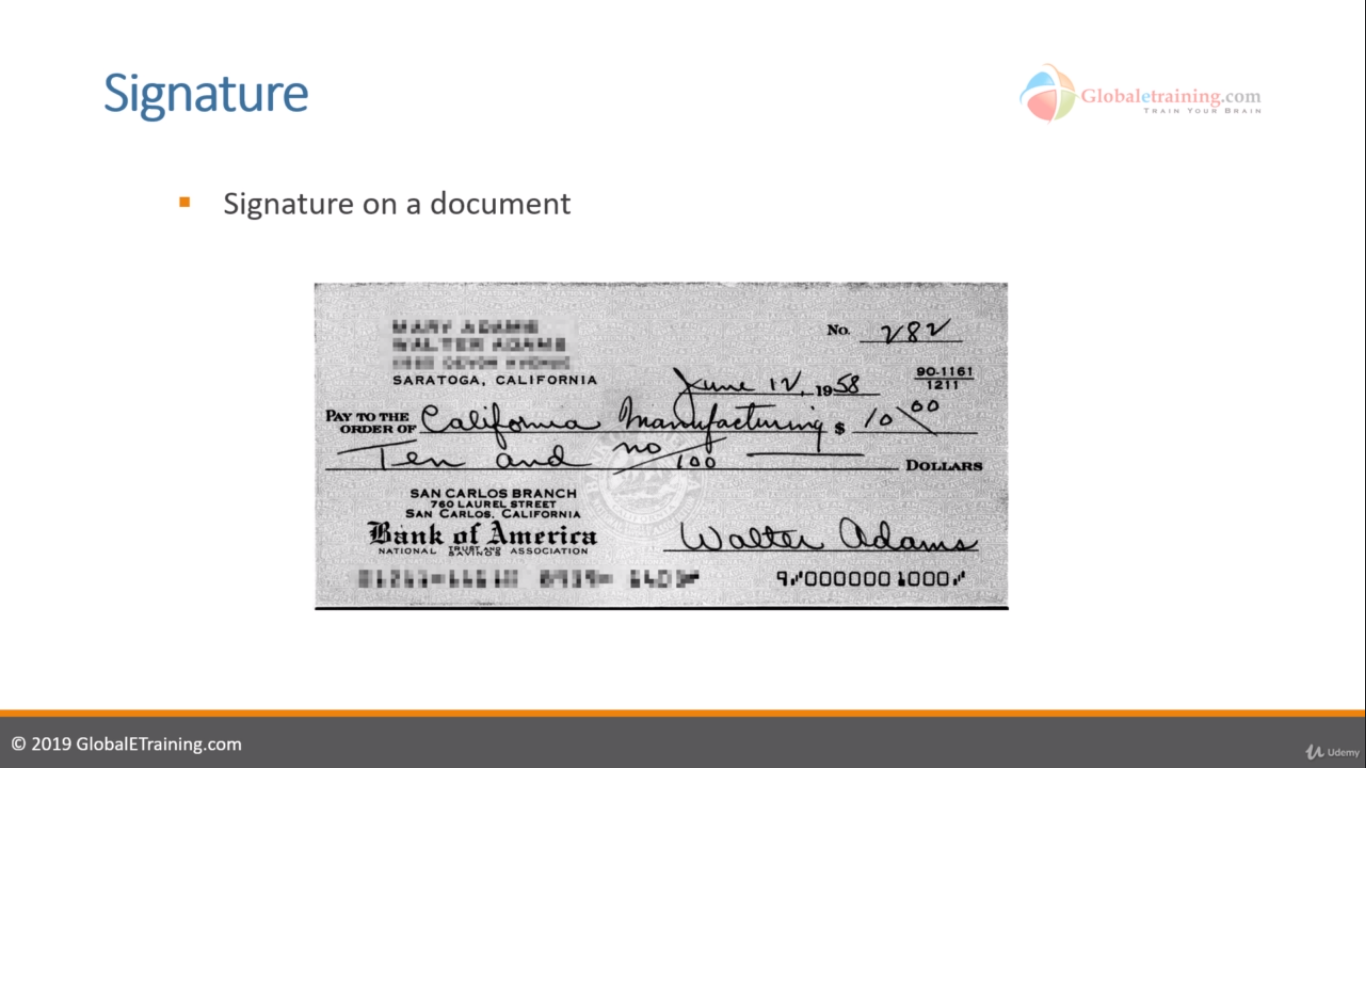 Signature
Globaletraining.com
TRAIN YOUR BRAIN
Signature on a document
MARY ADAMS
WALTER ADAMS
SARATOGA, CALIFORNIA
No. 282
June 12, 1958
90-1161
1211
PAY TO THE ORDER OF California Manufacturing $ 10 00
Ten and no/100 DOLLARS
SAN CARLOS BRANCH
760 LAUREL STREET
SAN CARLOS, CALIFORNIA
Bank of America
NATIONAL TRUST AND SAVINGS ASSOCIATION
Walter Adams
9⑈0000001000⑈
© 2019 GlobalETraining.com
Udemy